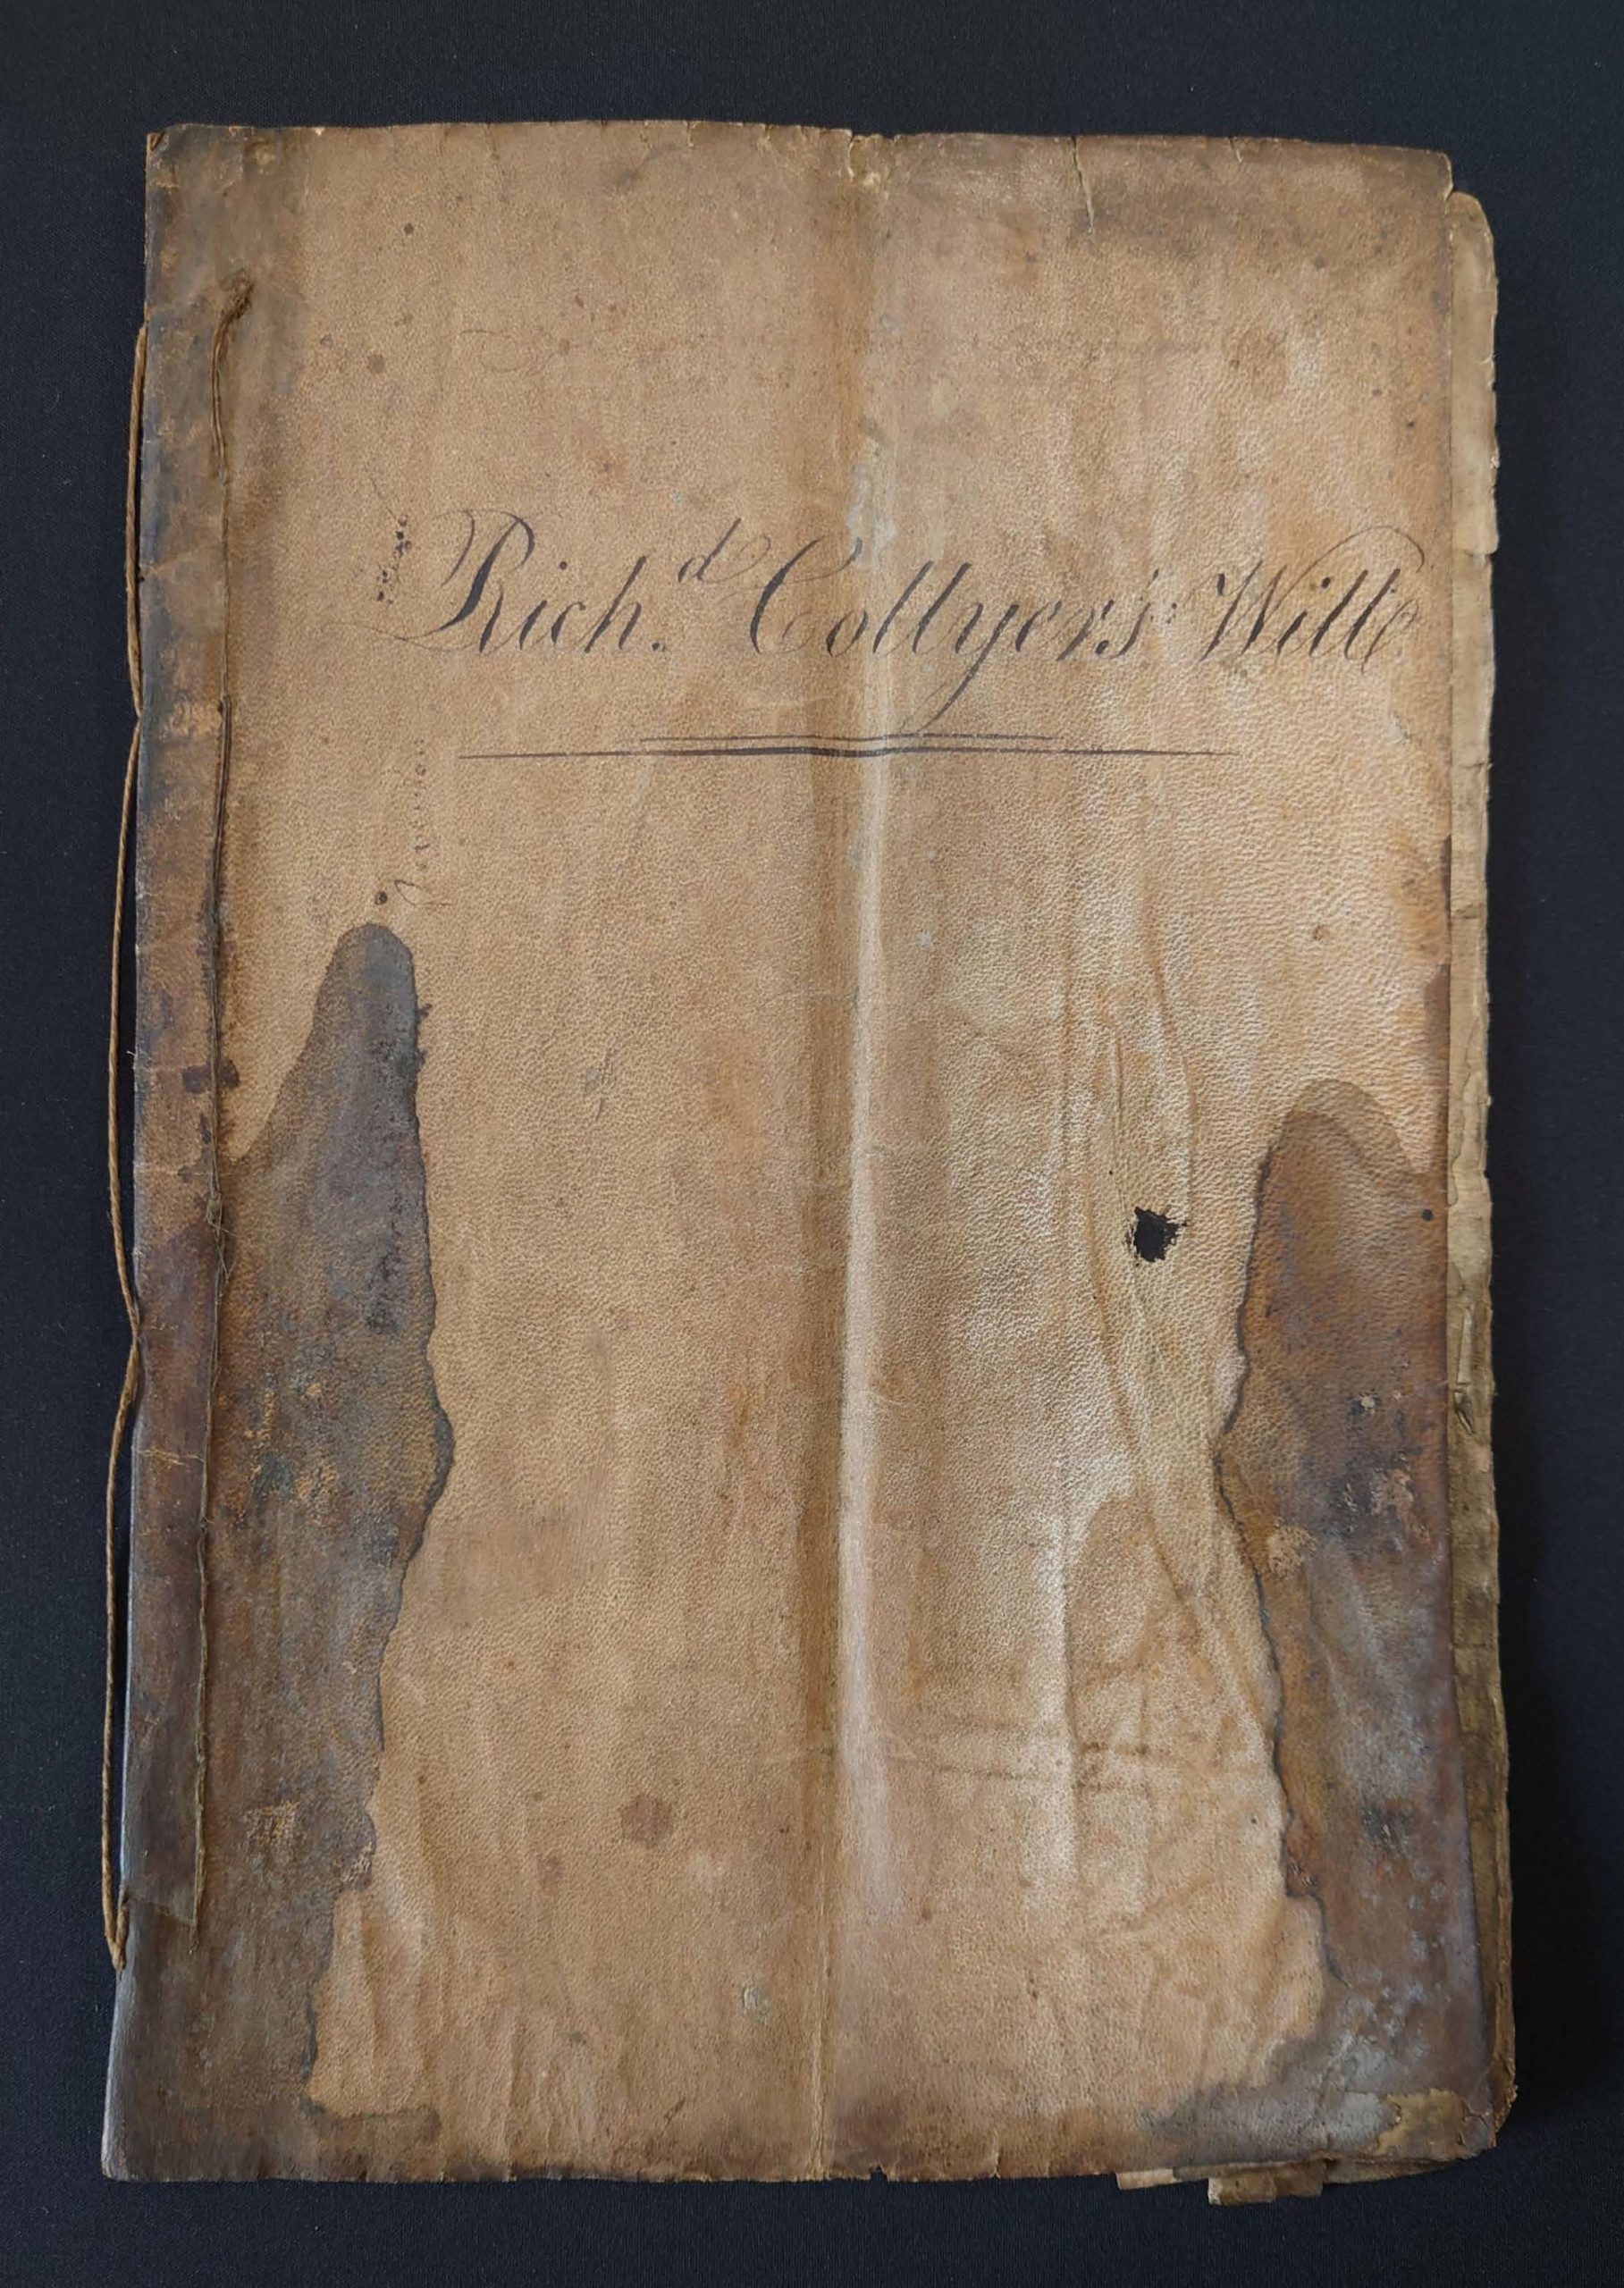 Rich.d Collyers' Will